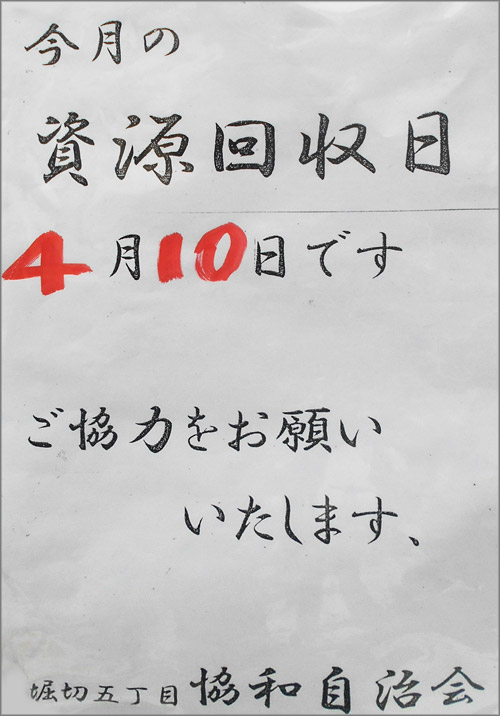 今月の
資源回収日
4月10日です
ご協力をお願い
いたします、
堀切五丁目 協和自治会